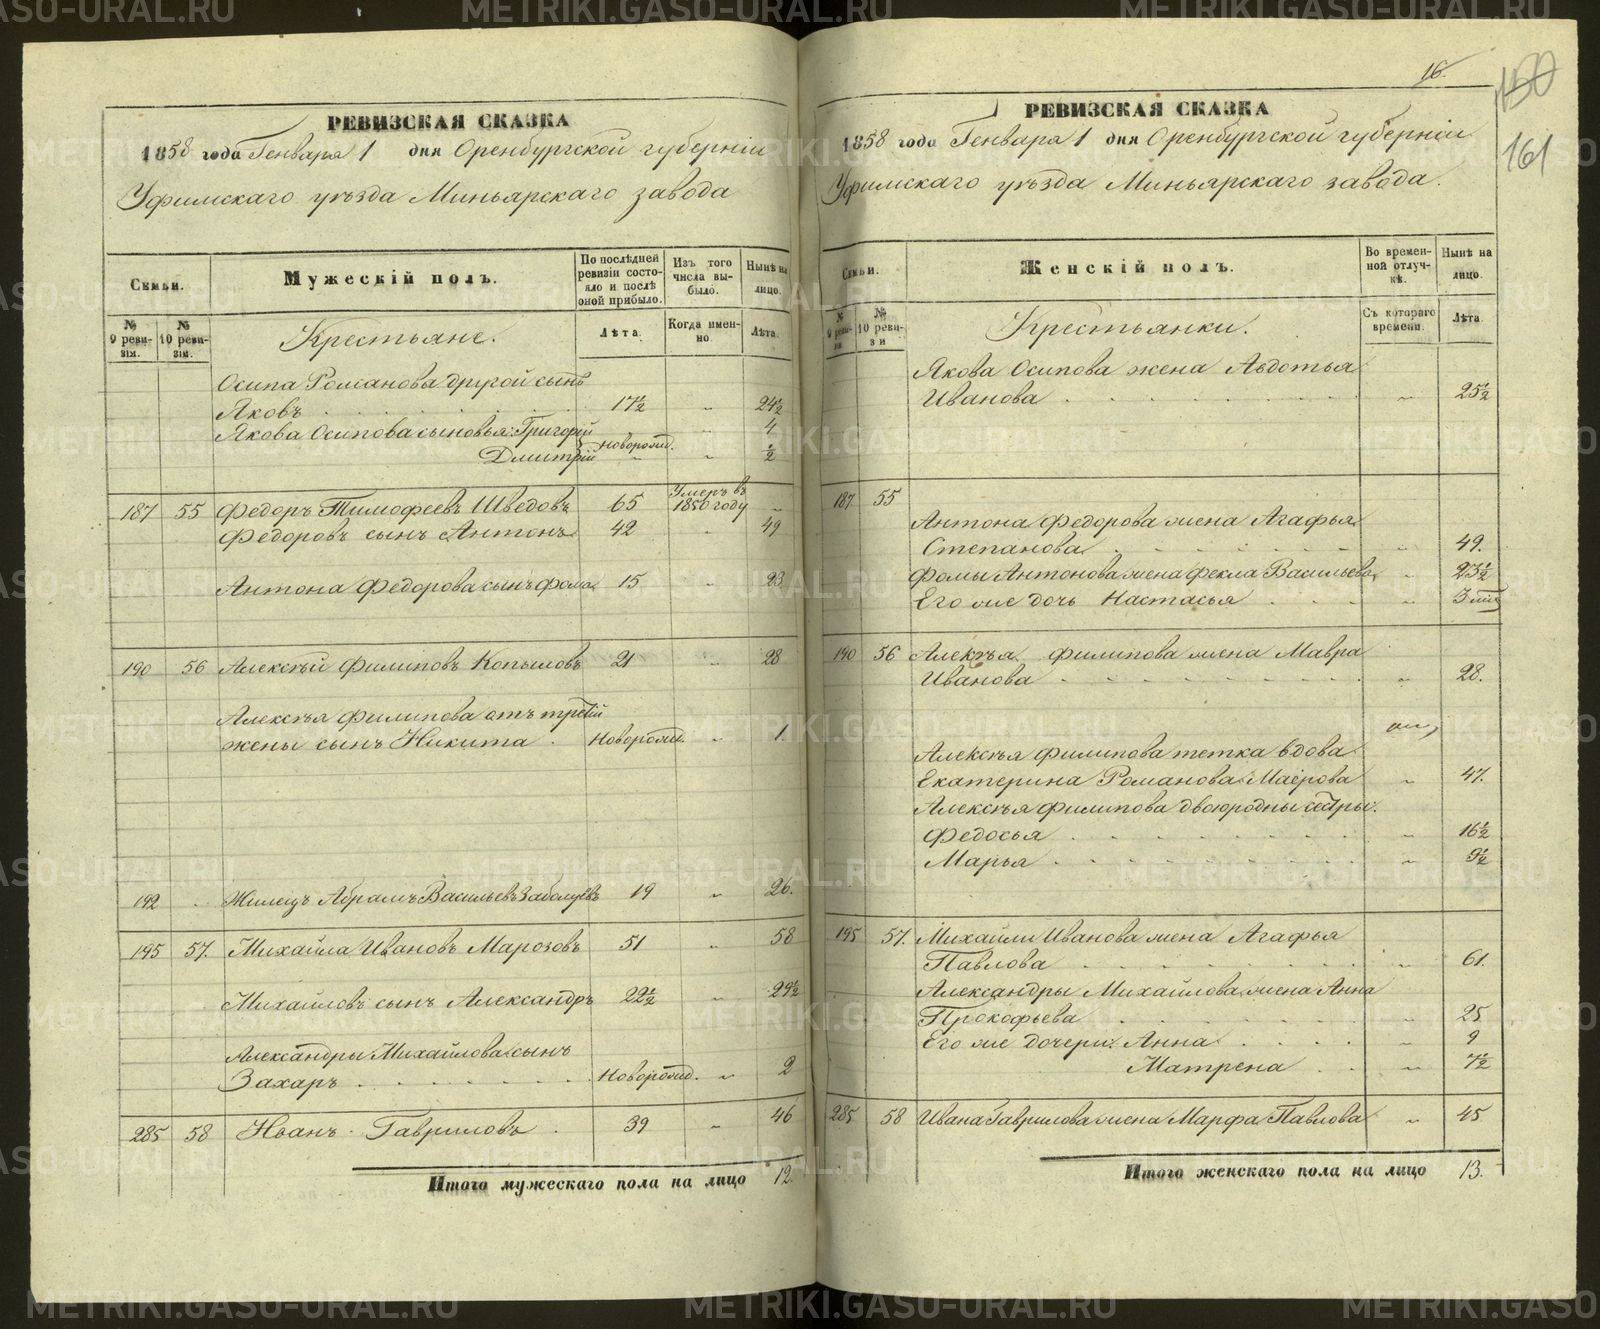 РЕВИЗСКАЯ СКАЗКА
1858 года Генваря 1 дня Оренбургской губерніи
Уфимскаго уѣзда Миньярскаго завода
Семьи.
Мужескій полъ.
По послѣдней ревизіи состояло и послѣ оной прибыло.
Изъ того числа выбыло.
Нынѣ на лицо.
№ 9 ревизіи.
№ 10 ревизіи.
Крестьяне.
Лѣта.
Когда именно.
Лѣта.
Осипа Романова другой сынъ
Яковъ 17½ " 24½
Якова Осипова сыновья: Григорій " 4
Дмитрій новорожд. " ½
187 55 Федоръ Тимофеевъ Шведовъ 65 Умеръ въ 1850 году "
Федоровъ сынъ Антонъ 42 " 49
Антона Федорова сынъ Фома 15 " 23
190 56 Алексѣй Филиповъ Копыловъ 21 " 28
Алексѣя Филипова отъ третій
жены сынъ Никита Новорожд. " 1.
192 Жилецъ Абрамъ Васильевъ 19 " 26.
195 57. Михайла Ивановъ Марозовъ 51 " 58
Михайловъ сынъ Александръ 22½ " 29½
Александры Михайлова сынъ
Захаръ Новорожд. " 2
285 58 Иванъ Гавриловъ 39 " 46
Итого мужескаго пола на лицо 12.
16.
150
161
РЕВИЗСКАЯ СКАЗКА
1858 года Генваря 1 дня Оренбургской губерніи
Уфимскаго уѣзда Миньярскаго завода.
Семьи.
Женскій полъ.
Во временной отлучкѣ.
Нынѣ на лицо.
№ 9 ревизіи
№ 10 ревизіи
Крестьянки.
Съ котораго времени.
Лѣта.
Якова Осипова жена Авдотья
Иванова " 25½
187 55
Антона Федорова жена Агафья
Степанова " 49.
Фомы Антонова жена Фекла Васильева " 23½
Его же дочь Настасья "
190 56 Алексѣя Филипова жена Мавра
Иванова " 28.
Алексѣя Филипова тетка вдова
Екатерина Романова " 47.
Алексѣя Филипова двоюродны сестры:
Федосья " 16½
Марья " 9½
195 57. Михайлы Иванова жена Агафья
Павлова " 61.
Александры Михайлова жена Анна
Прокофьева " 25
Его же дочери: Анна " 9
Матрена " 7½
285 58 Ивана Гаврилова жена Марфа Павлова " 45
Итого женскаго пола на лицо 13.
METRIKI.GASO-URAL.RU